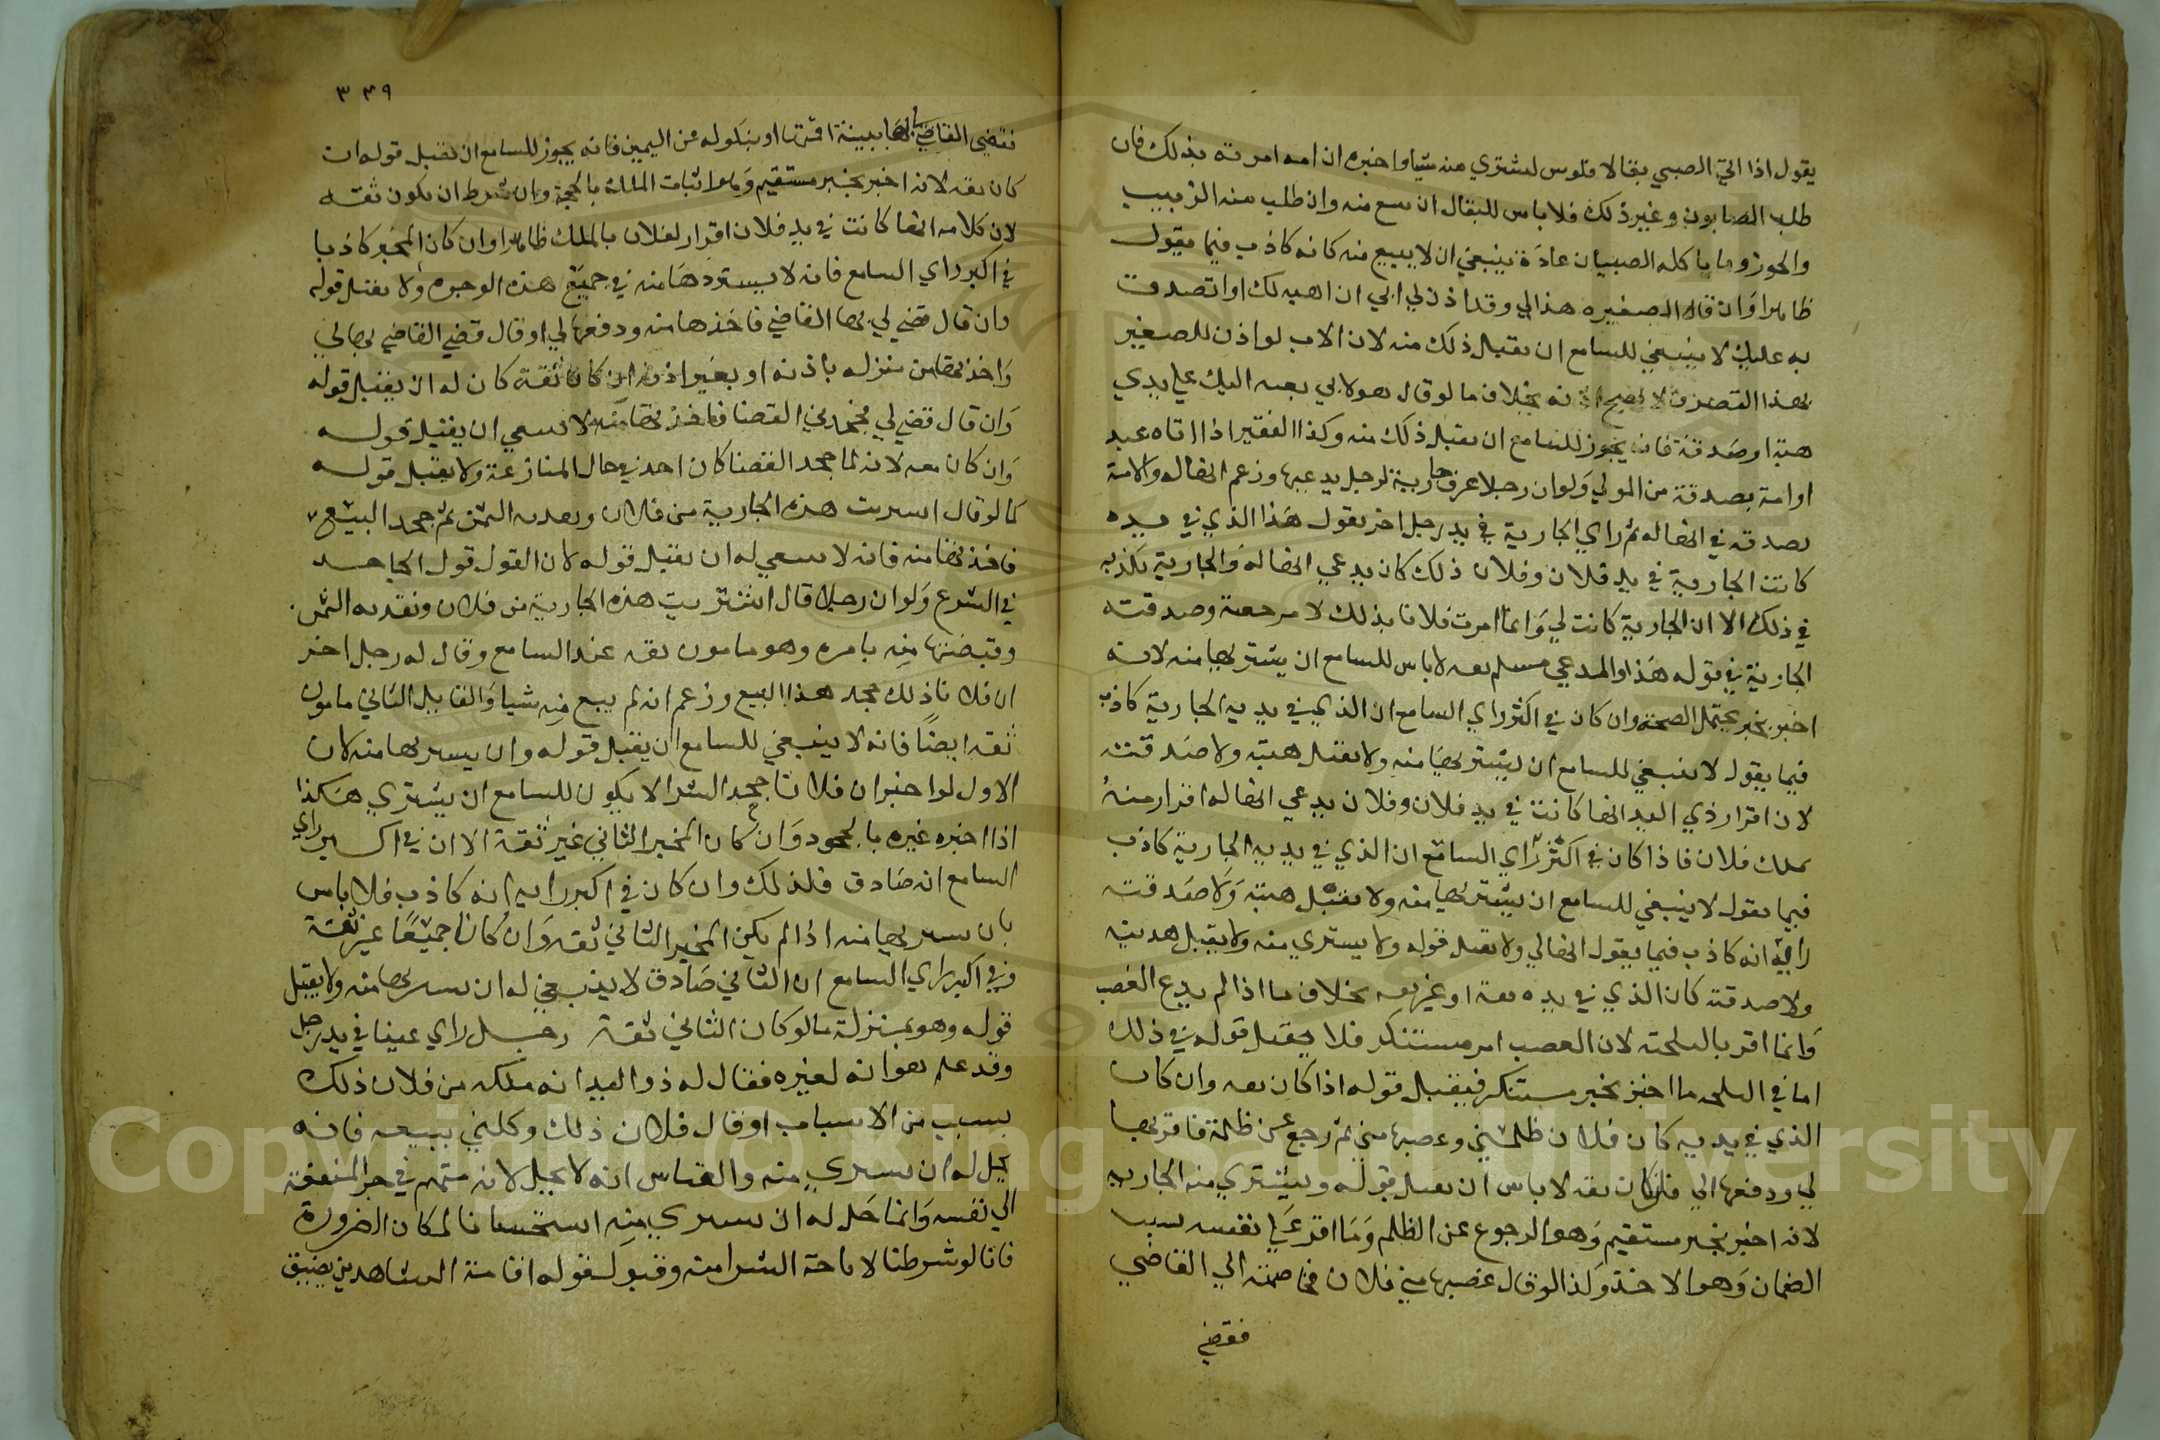 يقول اذا اتي الصبي بقالا بفلوس ليشتري منه شيا واخبره ان امه امرته بذلك فان
طلب الصابون وغير ذلك فلا باس للبقال ان يبيع منه وان طلب منه الزبيب
والجوز وما ياكله الصبيان عادة ينبغي ان لا يبيع منه كانه كاذب فيما يقول
ظاهرا وان قال الصغير هذا لي وقد اذن لي ابي ان اهبه لك او اتصدق
به عليك لا ينبغي للسامع ان يقبل ذلك منه لان الاب لو اذن للصغير
بهذا التصرف لا يصح اذنه بخلاف ما لو قال هو لابي بعثه اليك علي يدي
هبة او صدقة فانه يجوز للسامع ان يقبل ذلك منه وكذا الفقير اذا اتاه عبد
او امة بصدقة من المولي ولو ان رجلا عرف جارية لرجل يدعيها وزعم انها له والامة
تصدقه في انها له ثم راي الجارية في يد رجل اخر يقول هذا الذي في يده
كانت الجارية في يد فلان وفلان ذلك كان يدعي انها له والجارية تكذبه
في ذلك الا ان الجارية كانت لي وانما امرت فلانا بذلك لا مر صحة وصدقته
الجارية في قوله هذا والمدعي مسلم ثقه لا باس للسامع ان يشتريها منه لانه
اخبر بخبر يحتمل الصحة وان كان في اكثر راي السامع ان الذي في يديه الجارية كاذب
فيما يقول لا ينبغي للسامع ان يشتريها منه ولا يقبل هبته ولا صدقته
لان اقرار ذي اليد انها كانت في يد فلان وفلان يدعي انها له اقرار منه
بملك فلان فاذا كان في اكثر راي السامع ان الذي في يديه الجارية كاذب
فيما يقول لا ينبغي للسامع ان يشتريها منه ولا يقبل هبته ولا صدقته
رايه انه كاذب فيما يقول انها لي ولا يقبل قوله ولا يشتري منه ولا يقبل هديته
ولا صدقته كان الذي في يده ثقة او غير ثقه بخلاف ما اذا لم يدع الغصب
وانما اقر بالتلجئة لان الغصب امر مستنكر فلا يقبل قوله في ذلك
اما في التلجئه ما اخبر بخبر مستنكر فيقبل قوله اذا كان ثقه وان كان
الذي في يديه كان فلان ظلمني وغصبها مني ثم رجع عن ظلمة فاقر بها
لي ودفعها الي فان كان ثقه لا باس ان يقبل قوله ويشتري منه الجاريه
لانه اخبر بخبر مستقيم وهو الرجوع عن الظلم وما اقر علي نفسه بسبب
الضمان وهو الاخذ وكذا لو قال غصبها مني فلان فخاصمته الي القاضي
فقضي
٣٣٩
فقضي القاضي لي بها ببينة اقمتها او بنكوله عن اليمين فانه يجوز للسامع ان يقبل قوله ان
كان ثقه لانه اخبر بخبر مستقيم وهو اثبات الملك بالحجة وان شرط ان يكون ثقه
لان كلامه انها كانت في يد فلان اقرار لفلان بالملك ظاهرا وان كان المخبر كاذبا
في اكبر راي السامع فانه لا يستردها منه في جميع هذه الوجوه ولا يقبل قوله
وان قال قضي لي بها القاضي فاخذها منه ودفعها لي او قال قضي القاضي بها لي
واخذتها من منزله باذنه او بغير اذنه ان كان ثقة كان له ان يقبل قوله
وان قال قضي لي فجحدني القضا فاخذتها منه لا ينبغي ان يقبل قوله
وان كان ثقه لانه لما جحد القضا كان اخذ في حال المنازعة ولا يقبل قوله
كما لو قال اشتريت هذه الجارية من فلان ونقدته الثمن ثم جحد البيع
فاخذتها منه فانه لا ينبغي له ان يقبل قوله لان القول قول الجاحد
في الشرع ولو ان رجلا قال اشتريت هذه الجارية من فلان ونقدته الثمن
وقبضتها منه بامره وهو مامون ثقه عند السامع وقال له رجل اخر
ان فلانا ذلك جحد هذا البيع وزعم انه لم يبع منه شيا والقايل الثاني مامون
ثقه ايضا فانه لا ينبغي للسامع ان يقبل قوله وان يشتريها منه لان
الاول لو اخبر ان فلانا جحد الشرا لا يكون للسامع ان يشتري هكذا
اذا اخبره غيره بالجحود وان كان المخبر الثاني غير ثقة الا ان في اكبر راي
السامع انه صادق فكذلك وان كان في اكبر رايه انه كاذب فلا باس
بان يشتريها منه اذا لم يكن المخبر الثاني ثقه وان كانا جميعا غير ثقة
وفي اكبر راي السامع ان الثاني صادق لا ينبغي له ان يشتريها منه ولا يقبل
قوله وهو بمنزلة ما لو كان الثاني ثقة رجل راي عينا في يد رجل
وقد علم هو انه لغيره فقال له ذو اليد انه ملكه من فلان ذلك
بسبب من الاسباب او قال فلان ذلك وكلني ببيعه فانه
يحل له ان يشتري منه والقياس انه لا يحل لانه متهم في جر المنفعة
الي نفسه وانما حل له ان يشتري منه استحسانا لمكان الضرورة
فانا لو شرطنا لاباحة الشرا منه وقبول قوله اقامة الشاهدين يضيق